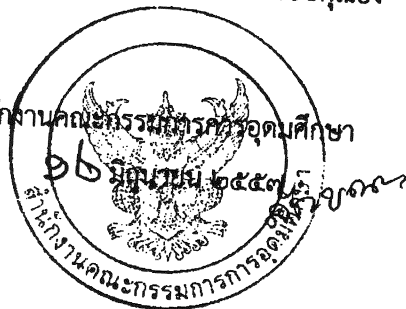 สำนักงานคณะกรรมการการอุดมศึกษา
๑๖ มิถุนายน ๒๕๕๗
สำนักงานคณะกรรมการการอุดมศึกษา